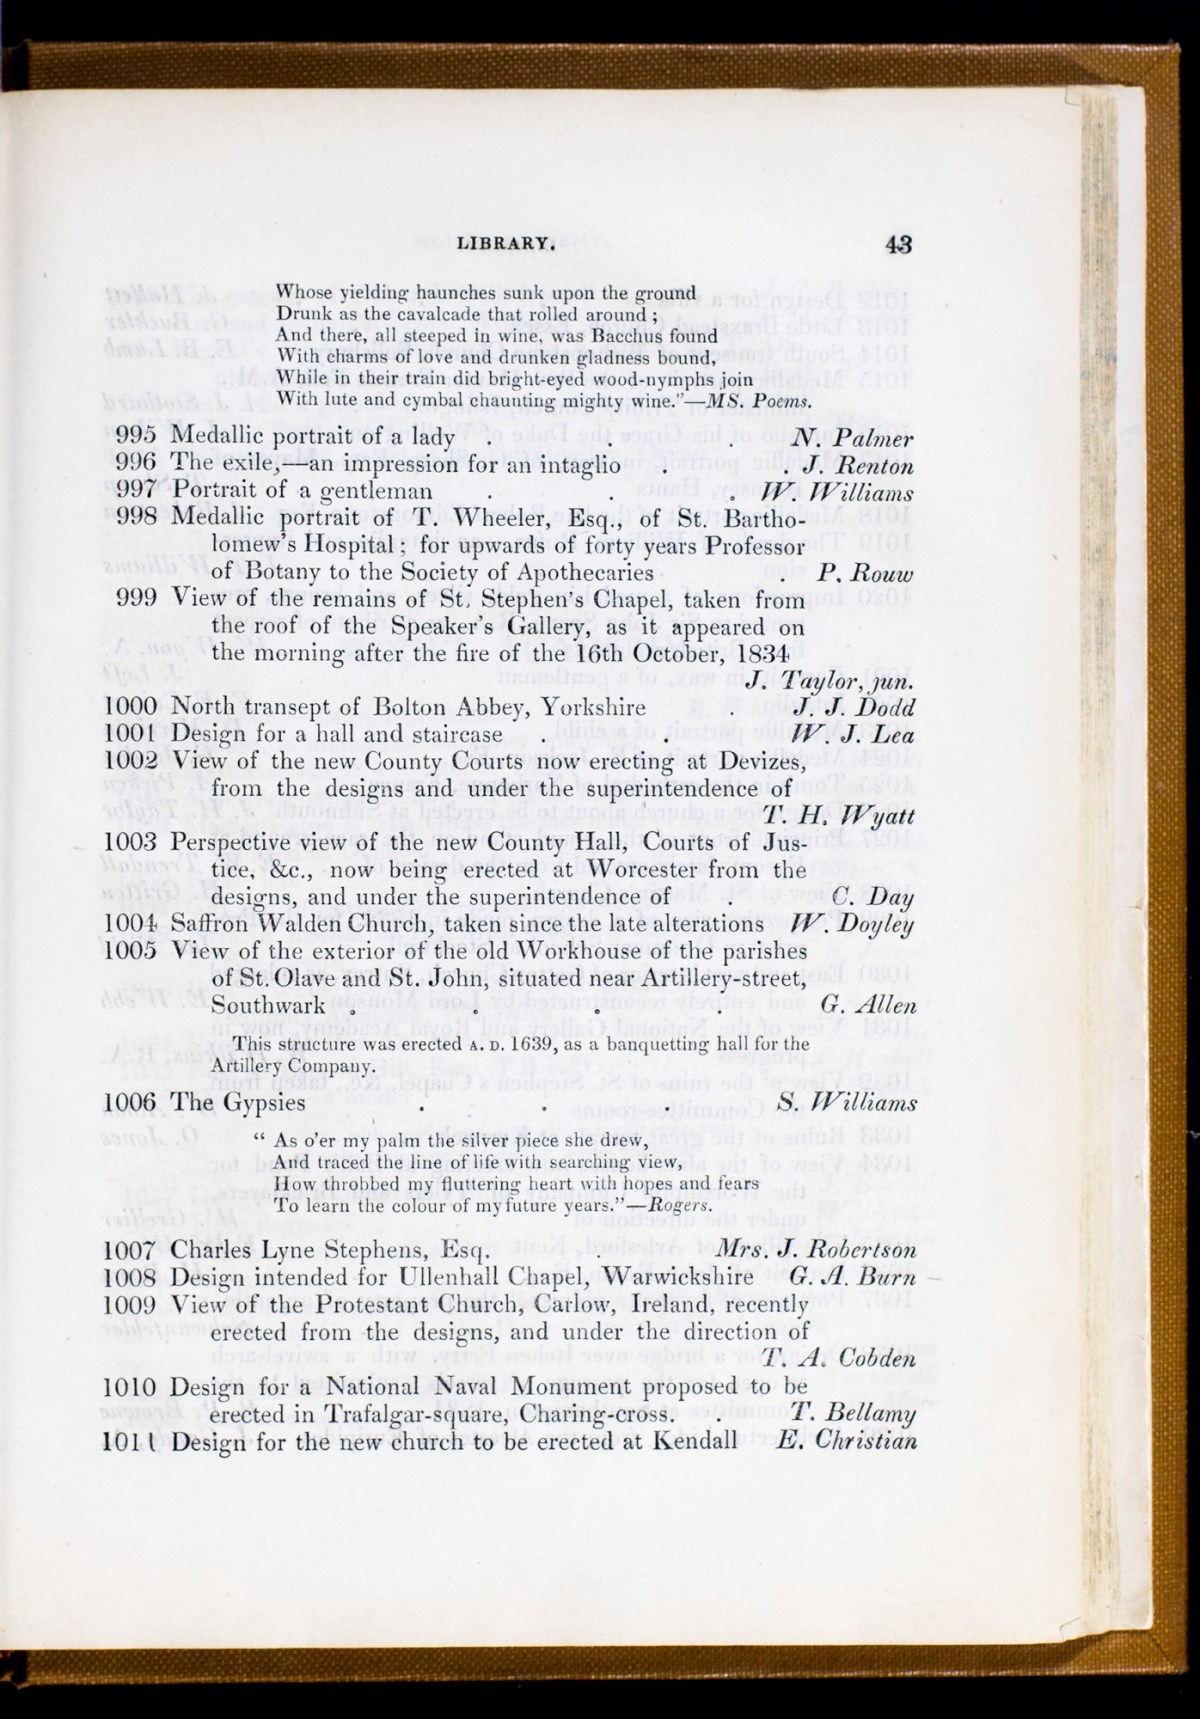 LIBRARY. 43
Whose yielding haunches sunk upon the ground
Drunk as the cavalcade that rolled around ;
And there, all steeped in wine, was Bacchus found
With charms of love and drunken gladness bound,
While in their train did bright-eyed wood-nymphs join
With lute and cymbal chaunting mighty wine."—MS. Poems.
995 Medallic portrait of a lady . . . N. Palmer
996 The exile,—an impression for an intaglio . . J. Renton
997 Portrait of a gentleman . . . W. Williams
998 Medallic portrait of T. Wheeler, Esq., of St. Bartho-
lomew's Hospital ; for upwards of forty years Professor
of Botany to the Society of Apothecaries . P. Rouw
999 View of the remains of St. Stephen's Chapel, taken from
the roof of the Speaker's Gallery, as it appeared on
the morning after the fire of the 16th October, 1834
J. Taylor, jun.
1000 North transept of Bolton Abbey, Yorkshire . J. J. Dodd
1001 Design for a hall and staircase . . W. J. Lea
1002 View of the new County Courts now erecting at Devizes,
from the designs and under the superintendence of
T. H. Wyatt
1003 Perspective view of the new County Hall, Courts of Jus-
tice, &c., now being erected at Worcester from the
designs, and under the superintendence of . C. Day
1004 Saffron Walden Church, taken since the late alterations W. Doyley
1005 View of the exterior of the old Workhouse of the parishes
of St. Olave and St. John, situated near Artillery-street,
Southwark . . . . G. Allen
This structure was erected A. D. 1639, as a banquetting hall for the
Artillery Company.
1006 The Gypsies . . . S. Williams
" As o'er my palm the silver piece she drew,
And traced the line of life with searching view,
How throbbed my fluttering heart with hopes and fears
To learn the colour of my future years."—Rogers.
1007 Charles Lyne Stephens, Esq. . Mrs. J. Robertson
1008 Design intended for Ullenhall Chapel, Warwickshire G. A. Burn
1009 View of the Protestant Church, Carlow, Ireland, recently
erected from the designs, and under the direction of
T. A. Cobden
1010 Design for a National Naval Monument proposed to be
erected in Trafalgar-square, Charing-cross. . T. Bellamy
1011 Design for the new church to be erected at Kendall E. Christian